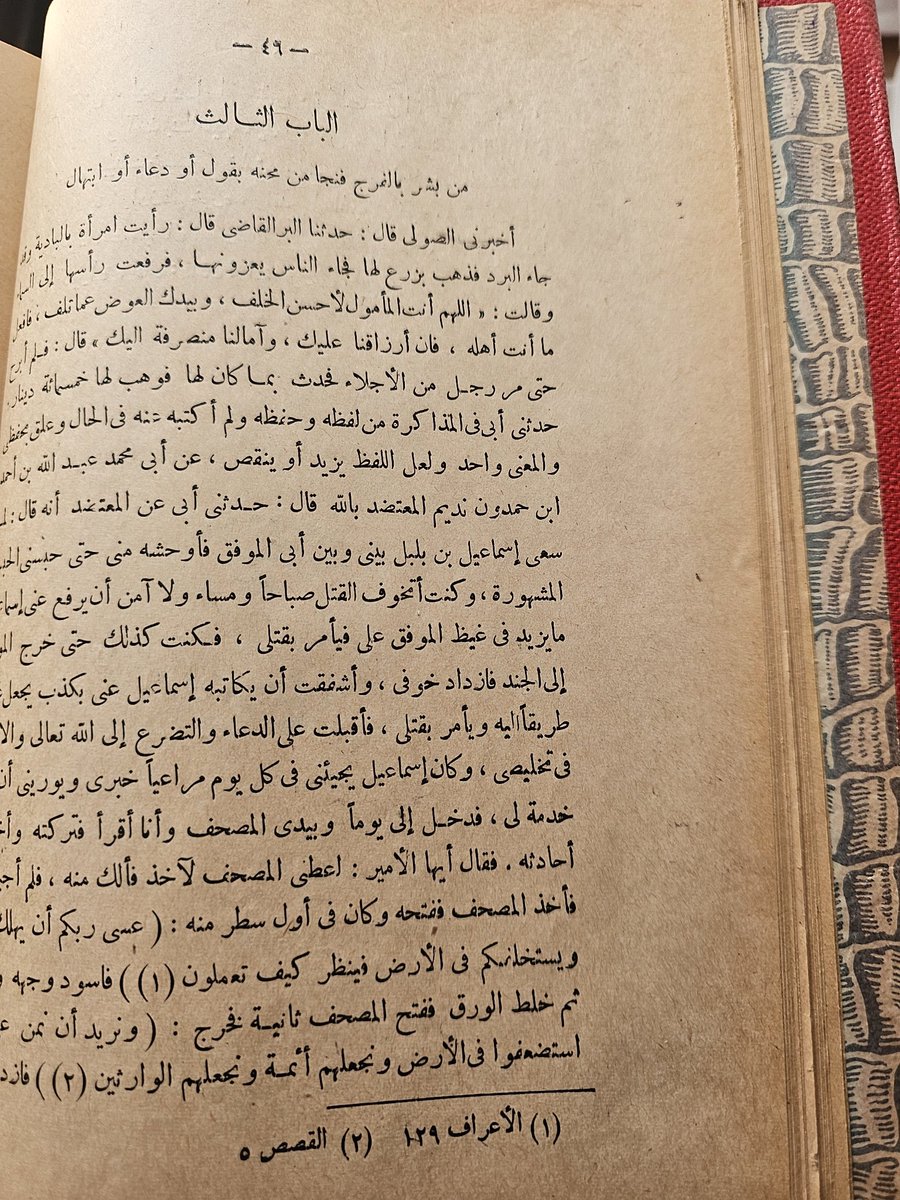 — ٤٦ —
الباب الثالث
من بشر بالفرج فنجا من محنه بقول أو دعاء أو ابتهال
أخبرنى الصولى قال : حدثنا البر القاضى قال : رأيت امرأة بالبادية
جاء البرد فذهب بزرع لها فجاء الناس يعزونها ، فرفعت رأسها إلى
وقالت : « اللهم أنت المأمول لأحسن الخلف ، وبيدك العوض عما تلف ،
ما أنت أهله ، فان أرزاقنا عليك ، وآمالنا منصرفة اليك » قال : فلم
حتى مر رجل من الأجلاء فحدث بما كان لها فوهب لها خمسمائة دينار
حدثنى أبى فى المذاكرة من لفظه وحفظه ولم أكتبه عنه فى الحال وعلق بحفظى
والمعنى واحد ولعل اللفظ يزيد أو ينقص ، عن أبى محمد عبد الله بن
ابن حمدون نديم المعتضد بالله قال : حدثنى أبى عن المعتضد أنه قال :
سعى إسماعيل بن بلبل بينى وبين أبى الموفق فأوحشه منى حتى حبسنى
المشهورة ، وكنت أتخوف القتل صباحاً ومساء ولا آمن أن يرفع عنى
مايزيد فى غيظ الموفق على فيأمر بقتلى ، فكنت كذلك حتى خرج
إلى الجند فازداد خوفى ، وأشفقت أن يكاتبه إسماعيل عنى بكذب
طريقاً اليه ويأمر بقتلى ، فأقبلت على الدعاء والتضرع إلى الله تعالى
فى تخليصى ، وكان إسماعيل يجيئنى فى كل يوم مراعياً خبرى ويورينى
خدمة لى ، فدخل إلى يوماً وبيدى المصحف وأنا أقرأ فتركته
أحادثه . فقال أيها الأمير : اعطنى المصحف لآخذ فألك منه ، فلم
فأخذ المصحف ففتحه وكان فى أول سطر منه : ( عسى ربكم أن
ويستخلفكم فى الأرض فينظر كيف تعملون (١) ) فاسود وجهه
ثم خلط الورق ففتح المصحف ثانية فخرج : ( ونريد أن نمن
استضعفوا فى الأرض ونجعلهم أئمة ونجعلهم الوارثين (٢) )
(١) الأعراف ١٢٩ (٢) القصص ٥